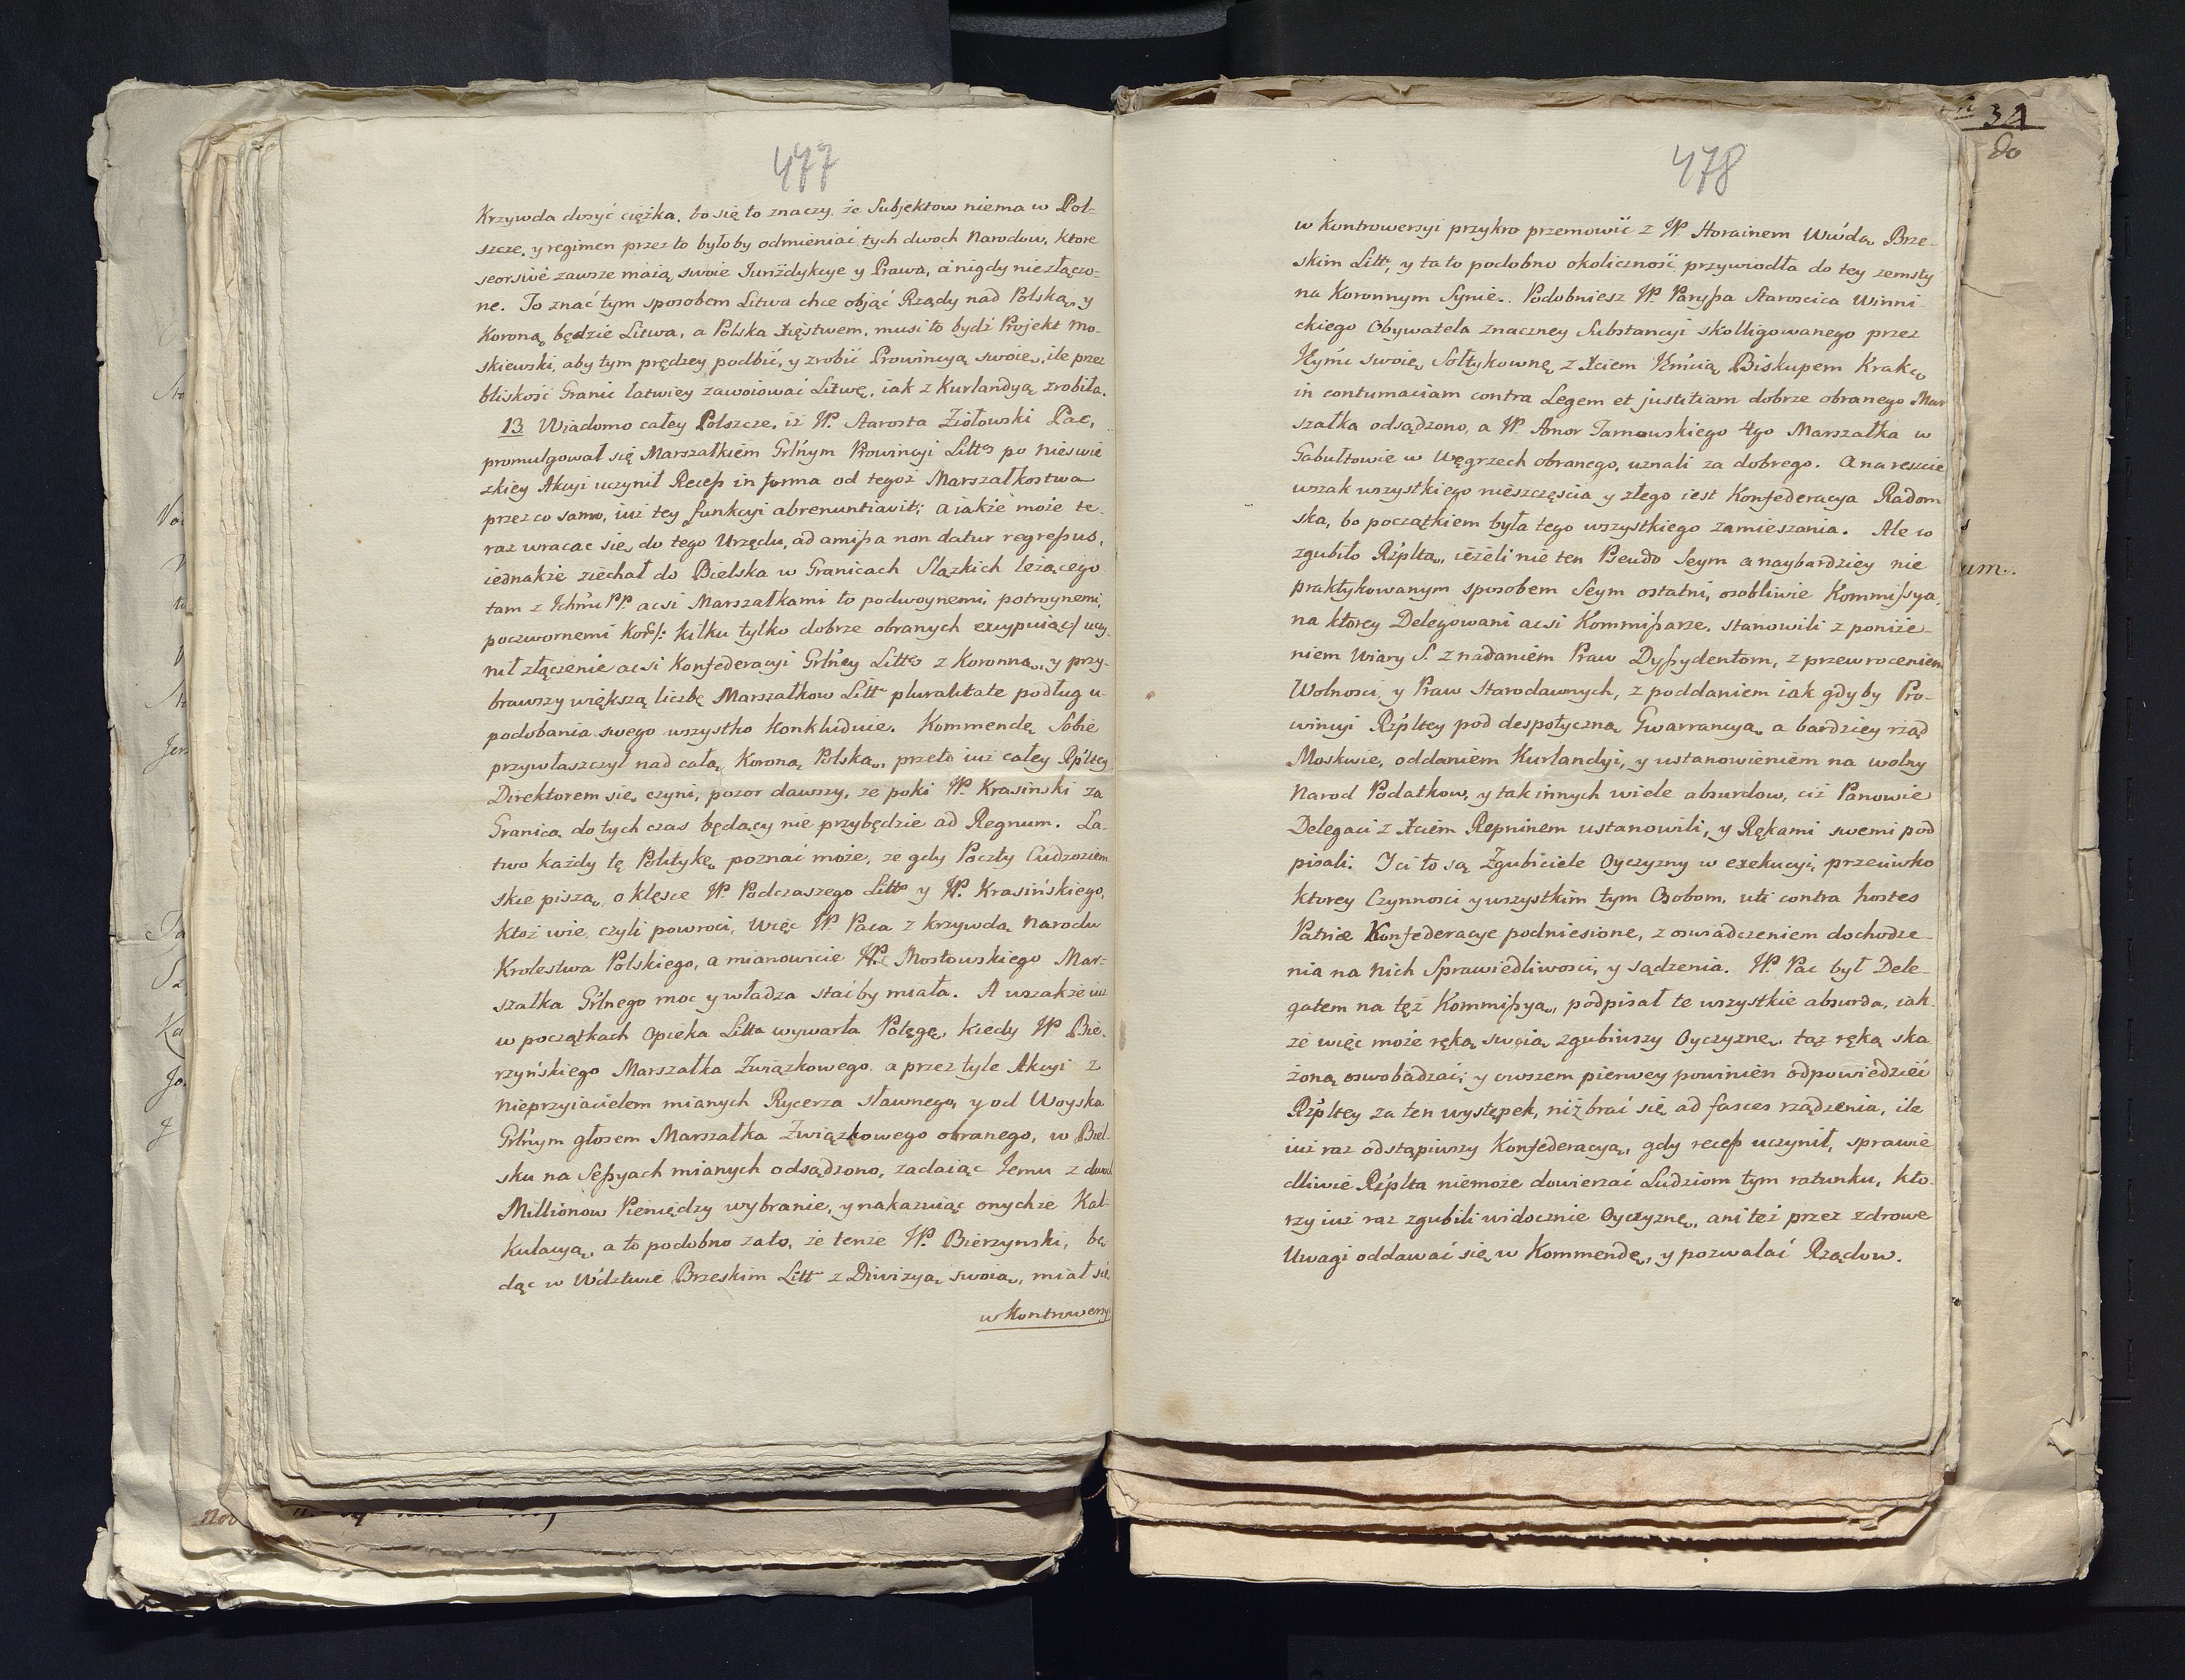 477
Krzywda dosyć ciężka, bo się to znaczy, że Subjektow niema w Pol-
szcze, y regimen przez to byłoby odmieniać tych dwoch Narodow, ktore
seorsive zawsze maią swoie Juriżdykcye y Prawa, a nigdy nie złączo-
ne. To znać tym sposobem Litwa chce objąć Rządy nad Polską, y
Koroną będzie Litwa, a Polska Xięstwem, musi to bydź Projekt Mo-
skiewski, aby tym prędzey podbić, y zrobić Prowincyą swoię, ile przez
bliskość Granic łatwiey zawoiować Litwę, iak z Kurlandyą zrobiła.
13. Wiadomo całey Polszcze, iż W. Starosta Ziołowski Pac,
promulgował się Marszałkiem Grlnym Prowincyi Litt° po Nieswie
zkiey Akcyi uczynił Recess in forma od tegoż Marszałkostwa
przez co samo, iuż tey funkcyi abrenuntiavit; a iakże może te-
raz wracac się do tego Urzędu, ad amissa non datur regressus,
iednakże ziechał do Bielska w Granicach Slązkich leżącego
tam z Ichmć PP. acsi Marszałkami to podwoynemi, potroynemi,
poczwornemi Kor: kilku tylko dobrze obranych excypuiąc/ uczy-
nił złączenie acsi Konfederacyi Grlney Litt° z Koronną, y przy-
brawszy większą liczbę Marszałkow Litt pluralitate podług u-
podobania swego wszystko konkluduie. Kommendę Sobie
przywłaszczył nad całą Koroną Polską, przeto iuż całey Rplltey
Direktorem się czyni, pozor dawszy, że poki W. Krasinski za
Granicą do tych czas będący nie przybędzie ad Regnum. Ła-
two każdy tę Politykę poznać może, że gdy Poczty Cudzoziem
skie piszą, o klęsce W. Podczaszego Litt° y W. Krasińskiego,
ktoż wie, czyli powroci, więc W. Paca z krzywdą Narodu
Krolestwa Polskiego, a mianowicie W. Mostowskiego Mar-
szałka Grlnego moc y władza staćby miała. A wszakże iuż
w początkach Opieka Litta wywarła Potęgę, kiedy W. Bie-
rzyńskiego Marszałka Związkowego a przez tyle Akcyi z
Nieprzyiacielem mianych Rycerza sławnego, y od Woyska
Grlnym głosem Marszałka Związkowego obranego, w Biel-
sku na Sessyach mianych odsądzono, zadaiąc Jemu z dwoch
Millionow Pieniędzy wybranie, y nakazuiąc onychże Kal-
kulacyą, a to podobno zato, że tenze W. Bierzynski, bę-
dąc w Wdztwie Brzeskim Litt z Diwizyą swoią, miał się
w Kontrowersy
478
w Kontrowersyi przykro przemowić z W. Horainem Wwdą Brze-
skim Litt, y ta to podobno okoliczność przywiodła do tey zemsty
na Koronnym Synie. Podobniesz W. Paryssa Staroscica Winni-
ckiego Obywatela znaczney Substancyi skolligowanego przez
Xymć swoię Sołtykownę z Xciem Jmcią Biskupem Krakc
in contumaciam contra Legem et justitiam dobrze obranego Mar
szałka odsądzono, a W. Amor Tarnowskiego 4go Marszałka w
Gabułtowie w Węgrzech obranego, uznali za dobrego. A na reszcie
wszak wszystkiego nieszczęscia y złego iest Konfederacya Radom
ska, bo początkiem była tego wszystkiego zamieszania. Ale co
zgubiło Rzplta, ieżeli nie ten Pseudo Seym a naybardziey nie
praktykowanym sposobem Seym ostatni, osobliwie Kommissya,
na ktorey Delegowani acsi Kommissarze, stanowili z poniże-
niem Wiary S. z nadaniem Praw Dyssydentom, z przewroceniem
Wolnosci, y Praw Starodawnych, z poddaniem iak gdyby Pro-
wincyi Rzpltey pod despotyczną Gwarrancyą, a bardziey rząd
Moskwie, oddaniem Kurlandyi, y ustanowieniem na wolny
Narod Podatkow, y tak innych wiele absurdow, ciż Panowie
Delegaci z Xciem Repninem ustanowili, y Rękami swemi pod
pisali. I ci to są Zgubiciele Oyczyzny w exekucyi, przeciwko
ktorey Czynnosci y wszystkim tym Osobom, uti contra hostes
Patriæ Konfederacye podniesione, z oswiadczeniem dochodze-
nia na Nich Sprawiedliwosci, y sądzenia. W. Pac był Dele-
gatem na tęż Kommissyą, podpisał te wszystkie absurda, iak-
że więc może ręką swoią zgubiwszy Oyczyznę, taż ręką ska
żoną oswobadzać; y owszem pierwey powinien odpowiedzieć
Rzpltey za ten występek, niż brać się ad fasces rządzenia, ile
iuż raz odstąpiwszy Konfederacyą, gdy recess uczynił, sprawie
dliwie Rzplta niemoże dowierzać Ludziom tym ratunku, kto-
rzy iuż raz zgubili widocznie Oyczyznę, ani też przez zdrowe
Uwagi oddawać się w Kommendę, y pozwalać Rządow.
34
80
um.